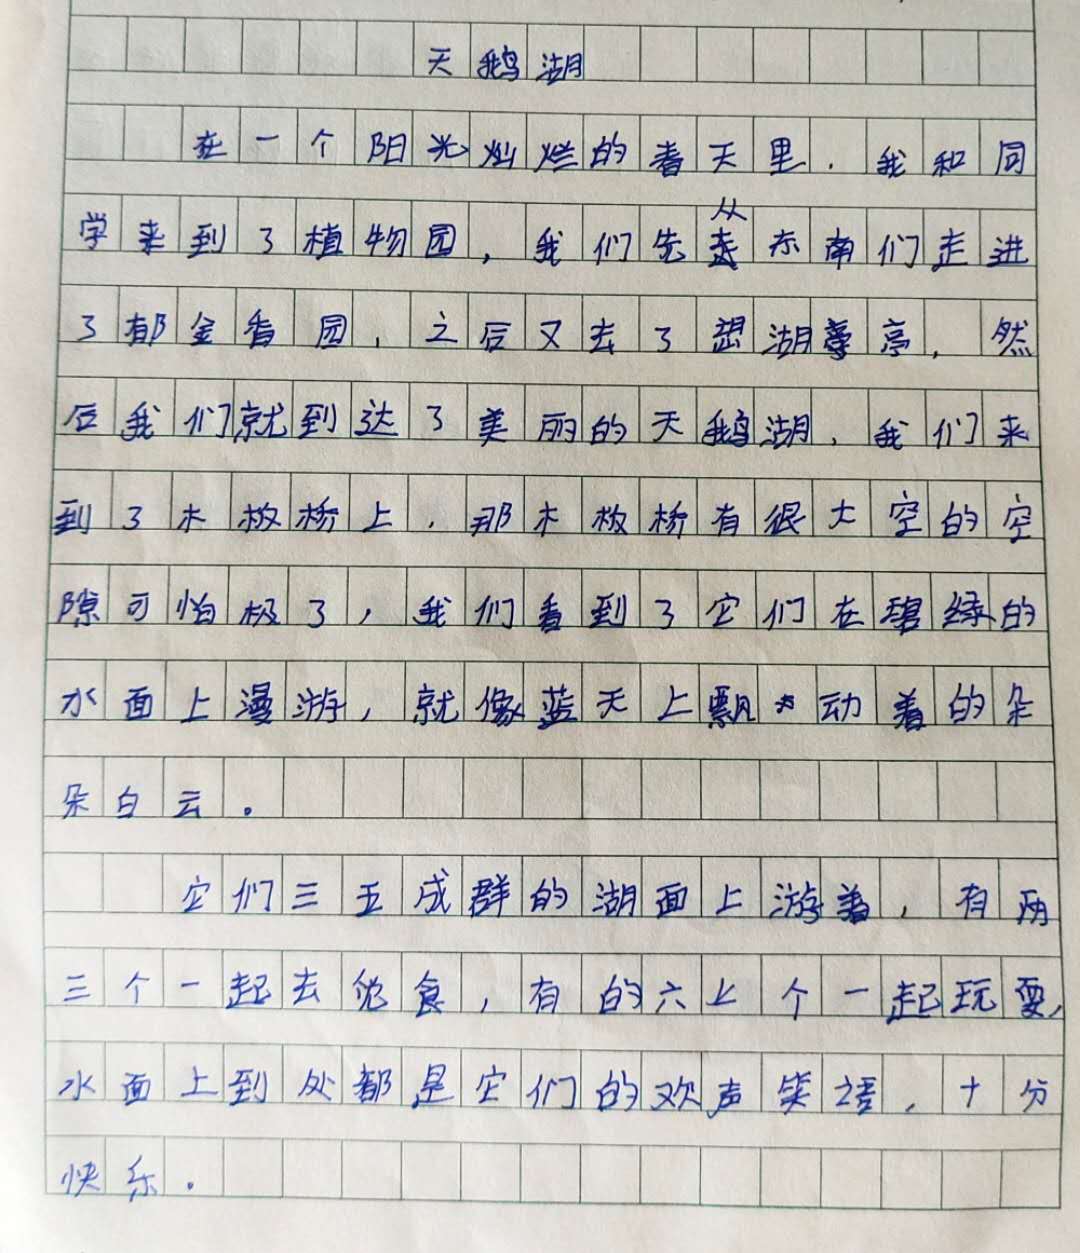 天鹅湖
在一个阳光灿烂的春天里，我和同
学来到了植物园，我们先从东南们走进
了郁金香园，之后又去了湖亭，然
后我们就到达了美丽的天鹅湖，我们来
到了木板桥上，那木板桥有很大空的空
隙可怕极了，我们看到了它们在碧绿的
水面上漫游，就像蓝天上飘动着的朵
朵白云。
它们三五成群的湖面上游着，有两
三个一起去觅食，有的六七个一起玩耍，
水面上到处都是它们的欢声笑语，十分
快乐。